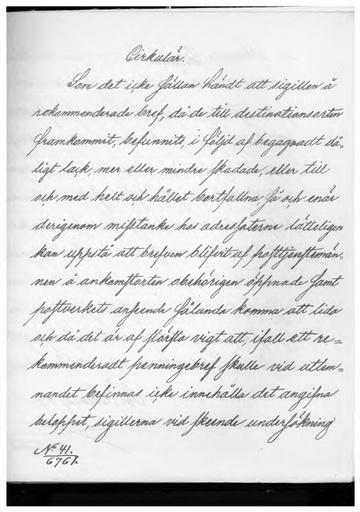 Cirkulär.
Som det icke sällan händt att sigillen å
rekommenderade bref, då de till destinationsorten
framkommit, befunnits, i följd af begagnadt då-
ligt lack, mer eller mindre skadade, eller till
och med helt och hållet bortfallna så och enär
derigenom misstanke hos adressaterne lätteligen
kan uppstå att brefven blifvit af posttjenstemän-
nen å ankomstorten obehörigen öppnade samt
postverkets anseende sålunda komma att lida
och då det är af största vigt att, ifall ett re-
kommenderadt penningebref skulle vid utlem-
nandet befinnas icke innehålla det angifna
beloppet, sigillerna vid skeende undersökning
No 41.
6761.